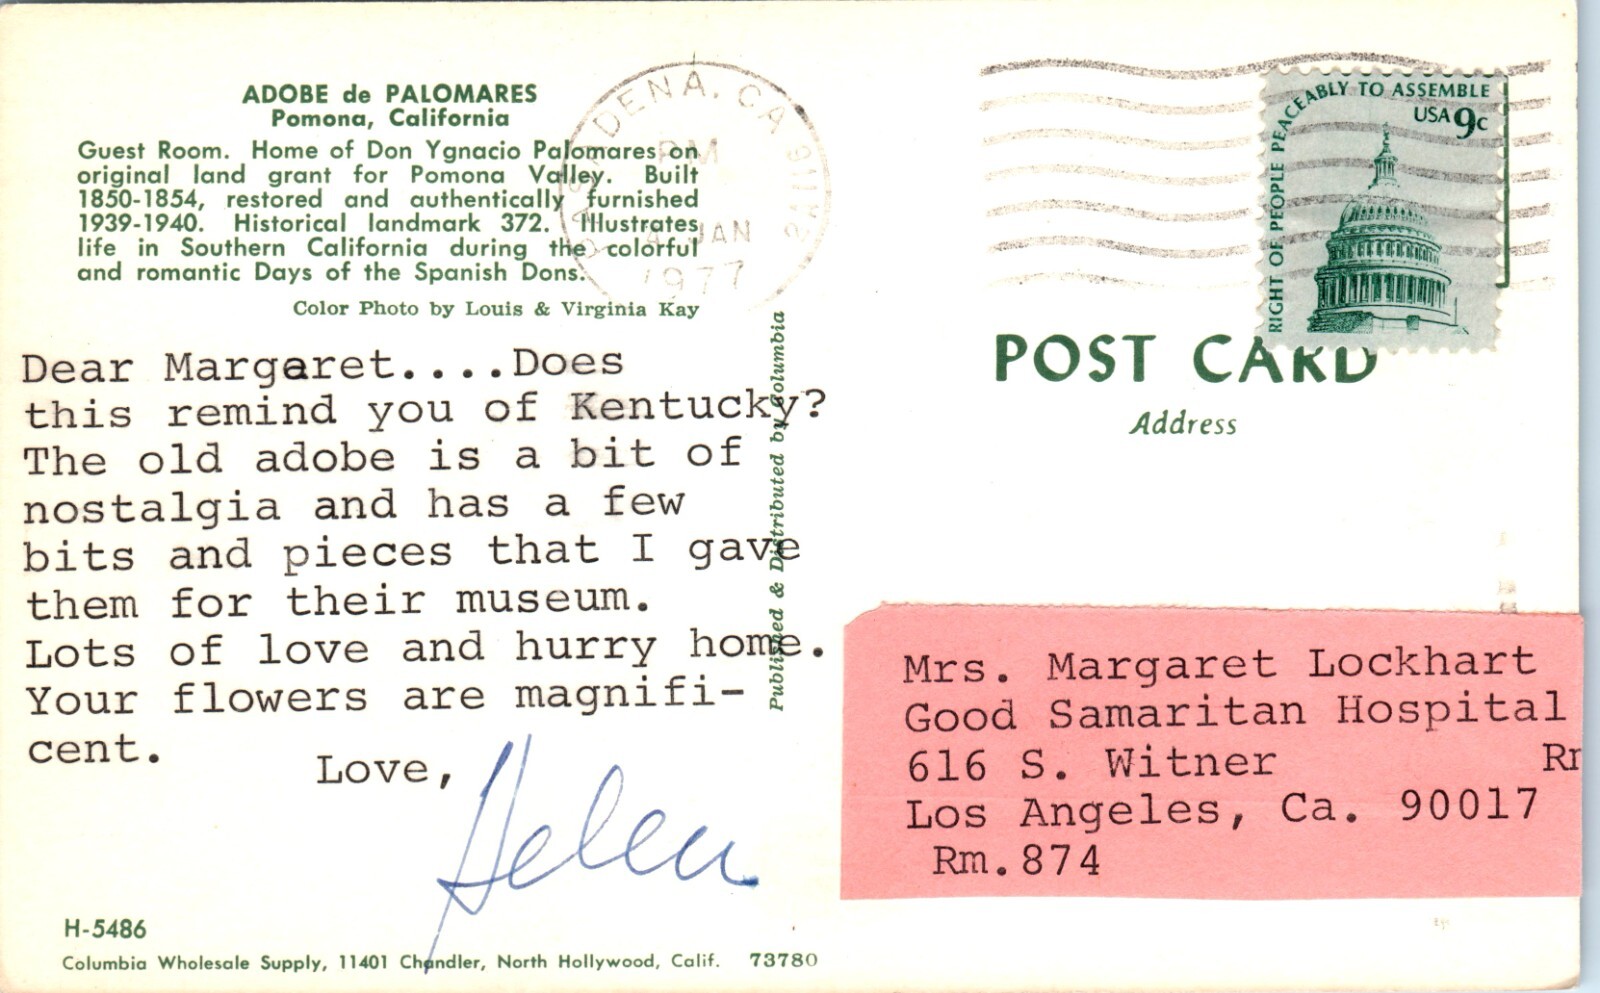 ADOBE de PALOMARES
Pomona, California
Guest Room. Home of Don Ygnacio Palomares on
original land grant for Pomona Valley. Built
1850-1854, restored and authentically furnished
1939-1940. Historical landmark 372. Illustrates
life in Southern California during the colorful
and romantic Days of the Spanish Dons.
Color Photo by Louis & Virginia Kay
Dear Margaret....Does
this remind you of Kentucky?
The old adobe is a bit of
nostalgia and has a few
bits and pieces that I gave
them for their museum.
Lots of love and hurry home.
Your flowers are magnifi-
cent.
Love,
Helen
H-5486
Columbia Wholesale Supply, 11401 Chandler, North Hollywood, Calif. 73780
Published & Distributed by Columbia
PASADENA, CA 911
PM
4 JAN
1977
RIGHT OF PEOPLE PEACEABLY TO ASSEMBLE
USA 9c
POST CARD
Address
Mrs. Margaret Lockhart
Good Samaritan Hospital
616 S. Witner
Los Angeles, Ca. 90017
Rm.874